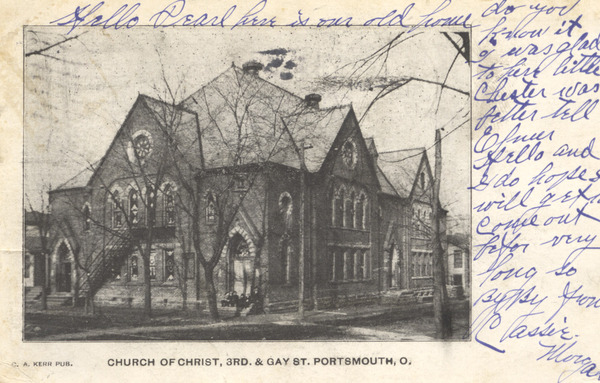 Hello Pearl here is our old home
do you
know it
I was glad
to here little
Chester was
better tell
Elmer
Hello and
I do hope
will get
come out
befor very
long so
By By from
Classie
Morgan
C. A. KERR PUB.
CHURCH OF CHRIST, 3RD. & GAY ST. PORTSMOUTH, O.